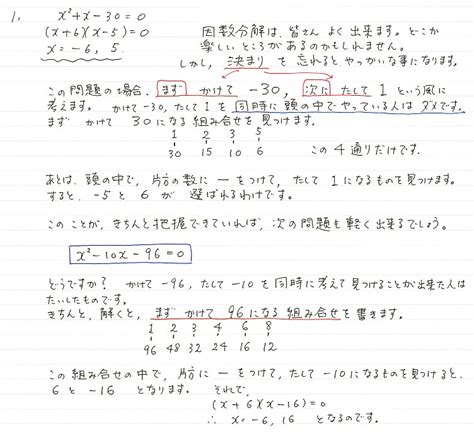 1. x²+x-30=0
(x+6)(x-5)=0
x=-6, 5
因数分解は、皆さん よく 出来ます。どこか
楽しい ところが あるのかもしれません。
しかし、決まり を 忘れると やっかいな事になります。
この 問題の場合、まず かけて -30, 次に たして 1 という風に
考えます。 かけて-30, たして 1 を 同時に 頭の中で やっている人は ダメです。
まず かけて 30になる 組み合せ を 見つけます。
1 2 3 5
30 15 10 6
この 4 通りだけです。
あとは、頭の中で、片方の数に ー を つけて, たして 1になるものを見つけます。
すると、-5 と 6 が 選ばれるわけです。
この ことが、きちんと把握できていれば, 次の 問題も 軽く 出来るでしょう。
x²-10x-96=0
どうですか? かけて -96, たして -10 を 同時に 考えて 見つけることが 出来た人は
たいしたものです。
きちんと、解くと, まず かけて 96 になる 組み合せを 書きます。
1 2 3 4 6 8
96 48 32 24 16 12
この 組み合せ の 中で, 片方に ー を つけて, たして -10 になるものを 見つけると、
6 と -16 となります。 それで、
(x+6)(x-16)=0
∴ x=-6, 16 となるのです。